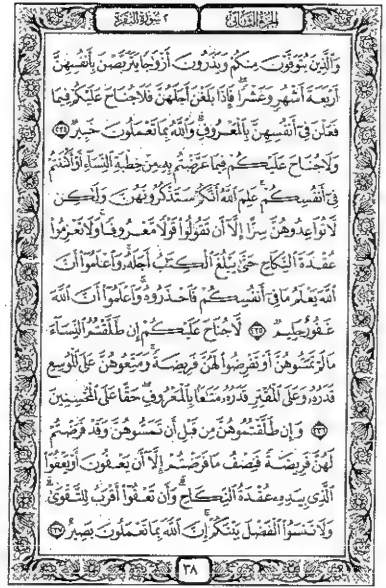 الجزء الثاني
٢ سورة البقرة
وَالَّذِينَ يُتَوَفَّوْنَ مِنكُمْ وَيَذَرُونَ أَزْوَاجًا يَتَرَبَّصْنَ بِأَنفُسِهِنَّ
أَرْبَعَةَ أَشْهُرٍ وَعَشْرًا ۖ فَإِذَا بَلَغْنَ أَجَلَهُنَّ فَلَا جُنَاحَ عَلَيْكُمْ فِيمَا
فَعَلْنَ فِي أَنفُسِهِنَّ بِالْمَعْرُوفِ ۗ وَاللَّهُ بِمَا تَعْمَلُونَ خَبِيرٌ ٢٣٤
وَلَا جُنَاحَ عَلَيْكُمْ فِيمَا عَرَّضْتُم بِهِ مِنْ خِطْبَةِ النِّسَاءِ أَوْ أَكْنَنتُمْ
فِي أَنفُسِكُمْ ۚ عَلِمَ اللَّهُ أَنَّكُمْ سَتَذْكُرُونَهُنَّ وَلَٰكِن
لَّا تُوَاعِدُوهُنَّ سِرًّا إِلَّا أَن تَقُولُوا قَوْلًا مَّعْرُوفًا ۚ وَلَا تَعْزِمُوا
عُقْدَةَ النِّكَاحِ حَتَّىٰ يَبْلُغَ الْكِتَابُ أَجَلَهُ ۚ وَاعْلَمُوا أَنَّ
اللَّهَ يَعْلَمُ مَا فِي أَنفُسِكُمْ فَاحْذَرُوهُ ۚ وَاعْلَمُوا أَنَّ اللَّهَ
غَفُورٌ حَلِيمٌ ٢٣٥ لَّا جُنَاحَ عَلَيْكُمْ إِن طَلَّقْتُمُ النِّسَاءَ
مَا لَمْ تَمَسُّوهُنَّ أَوْ تَفْرِضُوا لَهُنَّ فَرِيضَةً ۚ وَمَتِّعُوهُنَّ عَلَى الْمُوسِعِ
قَدَرُهُ وَعَلَى الْمُقْتِرِ قَدَرُهُ مَتَاعًا بِالْمَعْرُوفِ ۖ حَقًّا عَلَى الْمُحْسِنِينَ
٢٣٦ وَإِن طَلَّقْتُمُوهُنَّ مِن قَبْلِ أَن تَمَسُّوهُنَّ وَقَدْ فَرَضْتُمْ
لَهُنَّ فَرِيضَةً فَنِصْفُ مَا فَرَضْتُمْ إِلَّا أَن يَعْفُونَ أَوْ يَعْفُوَا
الَّذِي بِيَدِهِ عُقْدَةُ النِّكَاحِ ۚ وَأَن تَعْفُوا أَقْرَبُ لِلتَّقْوَىٰ ۚ
وَلَا تَنسَوُا الْفَضْلَ بَيْنَكُمْ ۚ إِنَّ اللَّهَ بِمَا تَعْمَلُونَ بَصِيرٌ ٢٣٧
٣٨